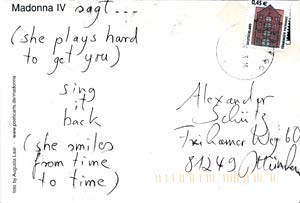 Madonna IV sagt...
(she plays hard
to get you)
sing
it
back
(she smiles
from time
to time)
foto by Augusta Laar
www.poetcarts.de/madonna
0,45 €
Alexander
Schütz
Weg 60
81249 München